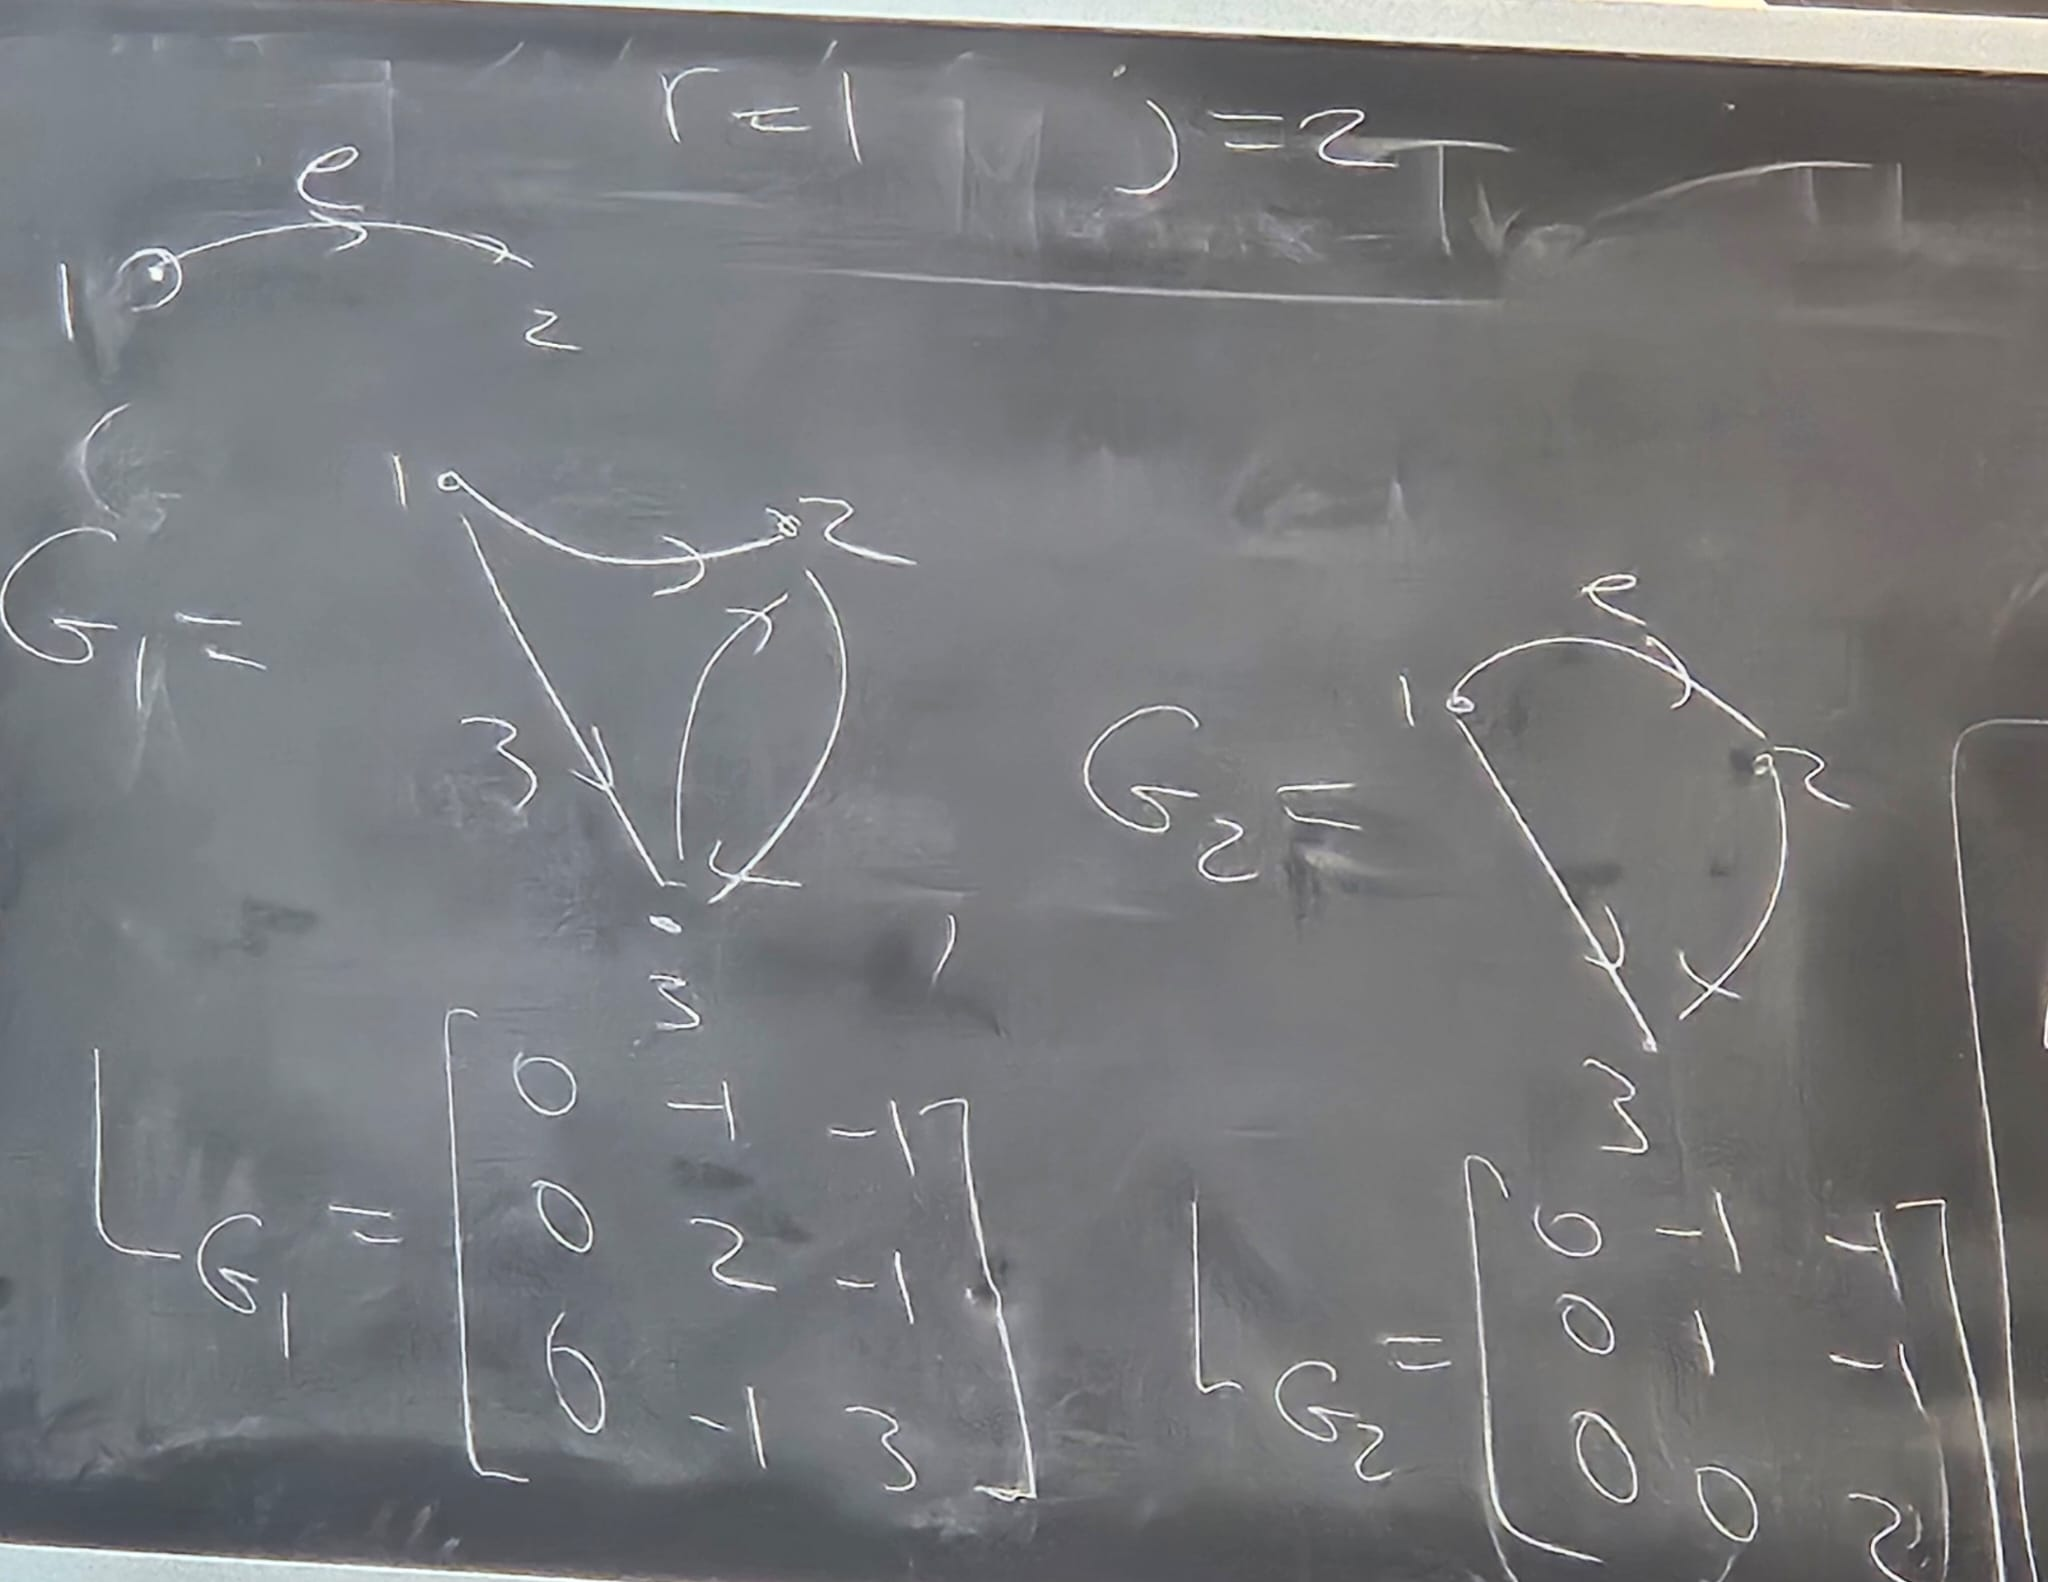 r=1 j=2
e
1 2
1 2
G₁=
3
3
e
1 2
G₂=
3
L_G₁ = [0 -1 -1
0 2 -1
0 -1 3]
L_G₂ = [0 -1 -1
0 1 -1
0 0 2]